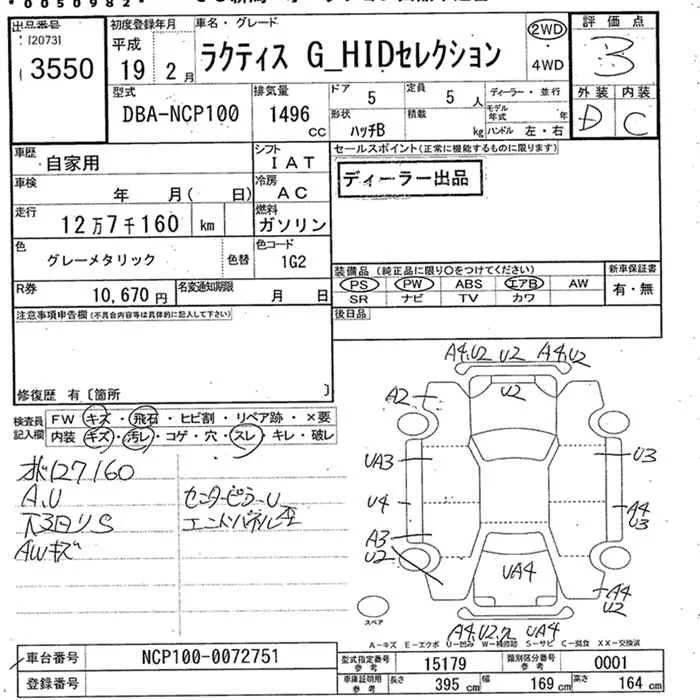 *0050982*
出品番号
120731
3550
初度登録年月
平成
19 2月
車名・グレード
ラクティス G_HIDセレクション
2WD
・
4WD
評価点
3
外装 内装
D C
型式
DBA-NCP100
排気量
1496
CC
ドア
5
定員
5人
形状
ハッチB
積載
kg
ディーラー・並行
モデル年式 年
ハンドル 左・右
車歴
自家用
シフト
IAT
車検
年 月( 日)
冷房
AC
走行
12万7千160 km
燃料
ガソリン
色
グレーメタリック
色替
色コード
1G2
R券
10,670円
名変通知期限
月 日
セールスポイント(正常に機能するものに限ります)
ディーラー出品
装備品(純正品に限り○をつけてください)
PS PW ABS エアB AW
SR ナビ TV カワ
新車保証書
有・無
後日品
注意事項申告欄(不具合内容等は具体的に記入して下さい)
修復歴 有〔箇所 〕
検査員
記入欄
FW キズ・飛石・ヒビ割・リペア跡・×要
内装 キズ・汚レ・コゲ・穴・スレ・キレ・破レ
ホド127160
A.U
下回りS
AWキズ
センターピラーU
エンドパネル
A4.U2 U2 A4.U2
U2
A2
UA3
U3
U4
A4
U3
A3
U2
UA4
A4
U2
A4.U2 UA4
スペア
A-キズ E-エクボ U-凹み W-補修跡 S-サビ C-腐食 XX-交換済
車台番号
NCP100-0072751
登録番号
型式指定番号
参考
15179
類別区分番号
参考
0001
車庫証明用
参考
長さ 395 cm 幅 169 cm 高さ 164 cm